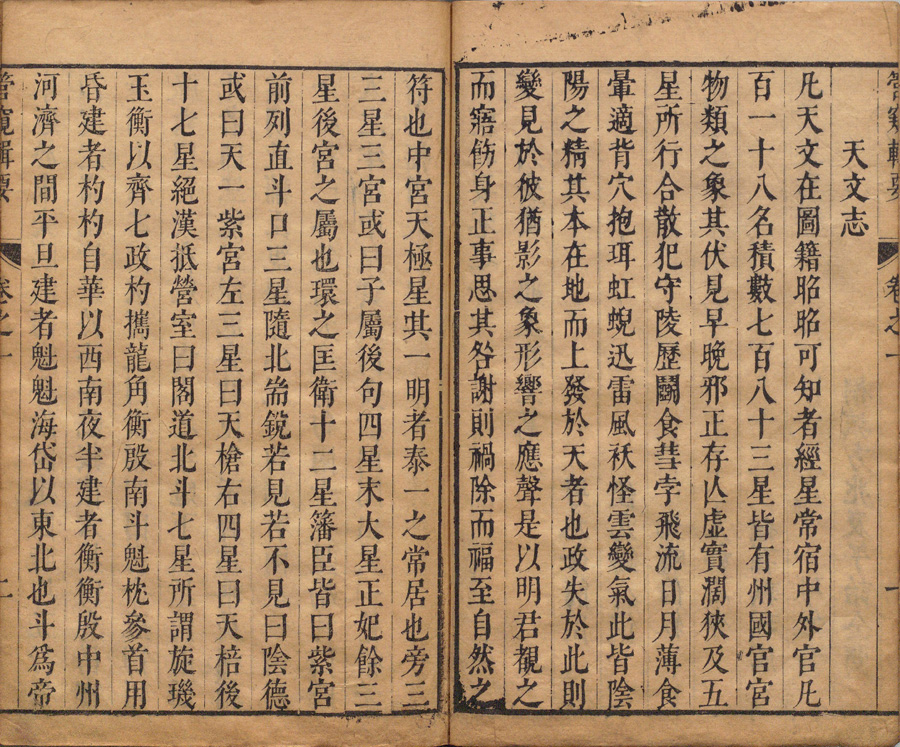 管窺輯要
卷之一
一
天文志
凡天文在圖籍昭昭可知者經星常宿中外官凡
百一十八名積數七百八十三星皆有州國官宮
物類之象其伏見早晚邪正存亾虛實濶狹及五
星所行合散犯守陵歷鬭食彗孛飛流日月薄食
暈適背穴抱珥虹蜺迅雷風祅怪雲變氣此皆陰
陽之精其本在地而上發於天者也政失於此則
變見於彼猶影之象形響之應聲是以明君覩之
而寤飭身正事思其咎謝則禍除而福至自然之
符也中宮天極星其一明者泰一之常居也旁三
三星三宮或曰子屬後句四星末大星正妃餘三
星後宮之屬也環之匡衛十二星籓臣皆曰紫宮
前列直斗口三星隨北耑銳若見若不見曰陰德
或曰天一紫宮左三星曰天槍右四星曰天棓後
十七星絕漢抵營室曰閣道北斗七星所謂旋璣
玉衡以齊七政杓攜龍角衡殷南斗魁枕參首用
昏建者杓杓自華以西南夜半建者衡衡殷中州
河濟之間平旦建者魁魁海岱以東北也斗爲帝
管窺輯要
卷之一
二